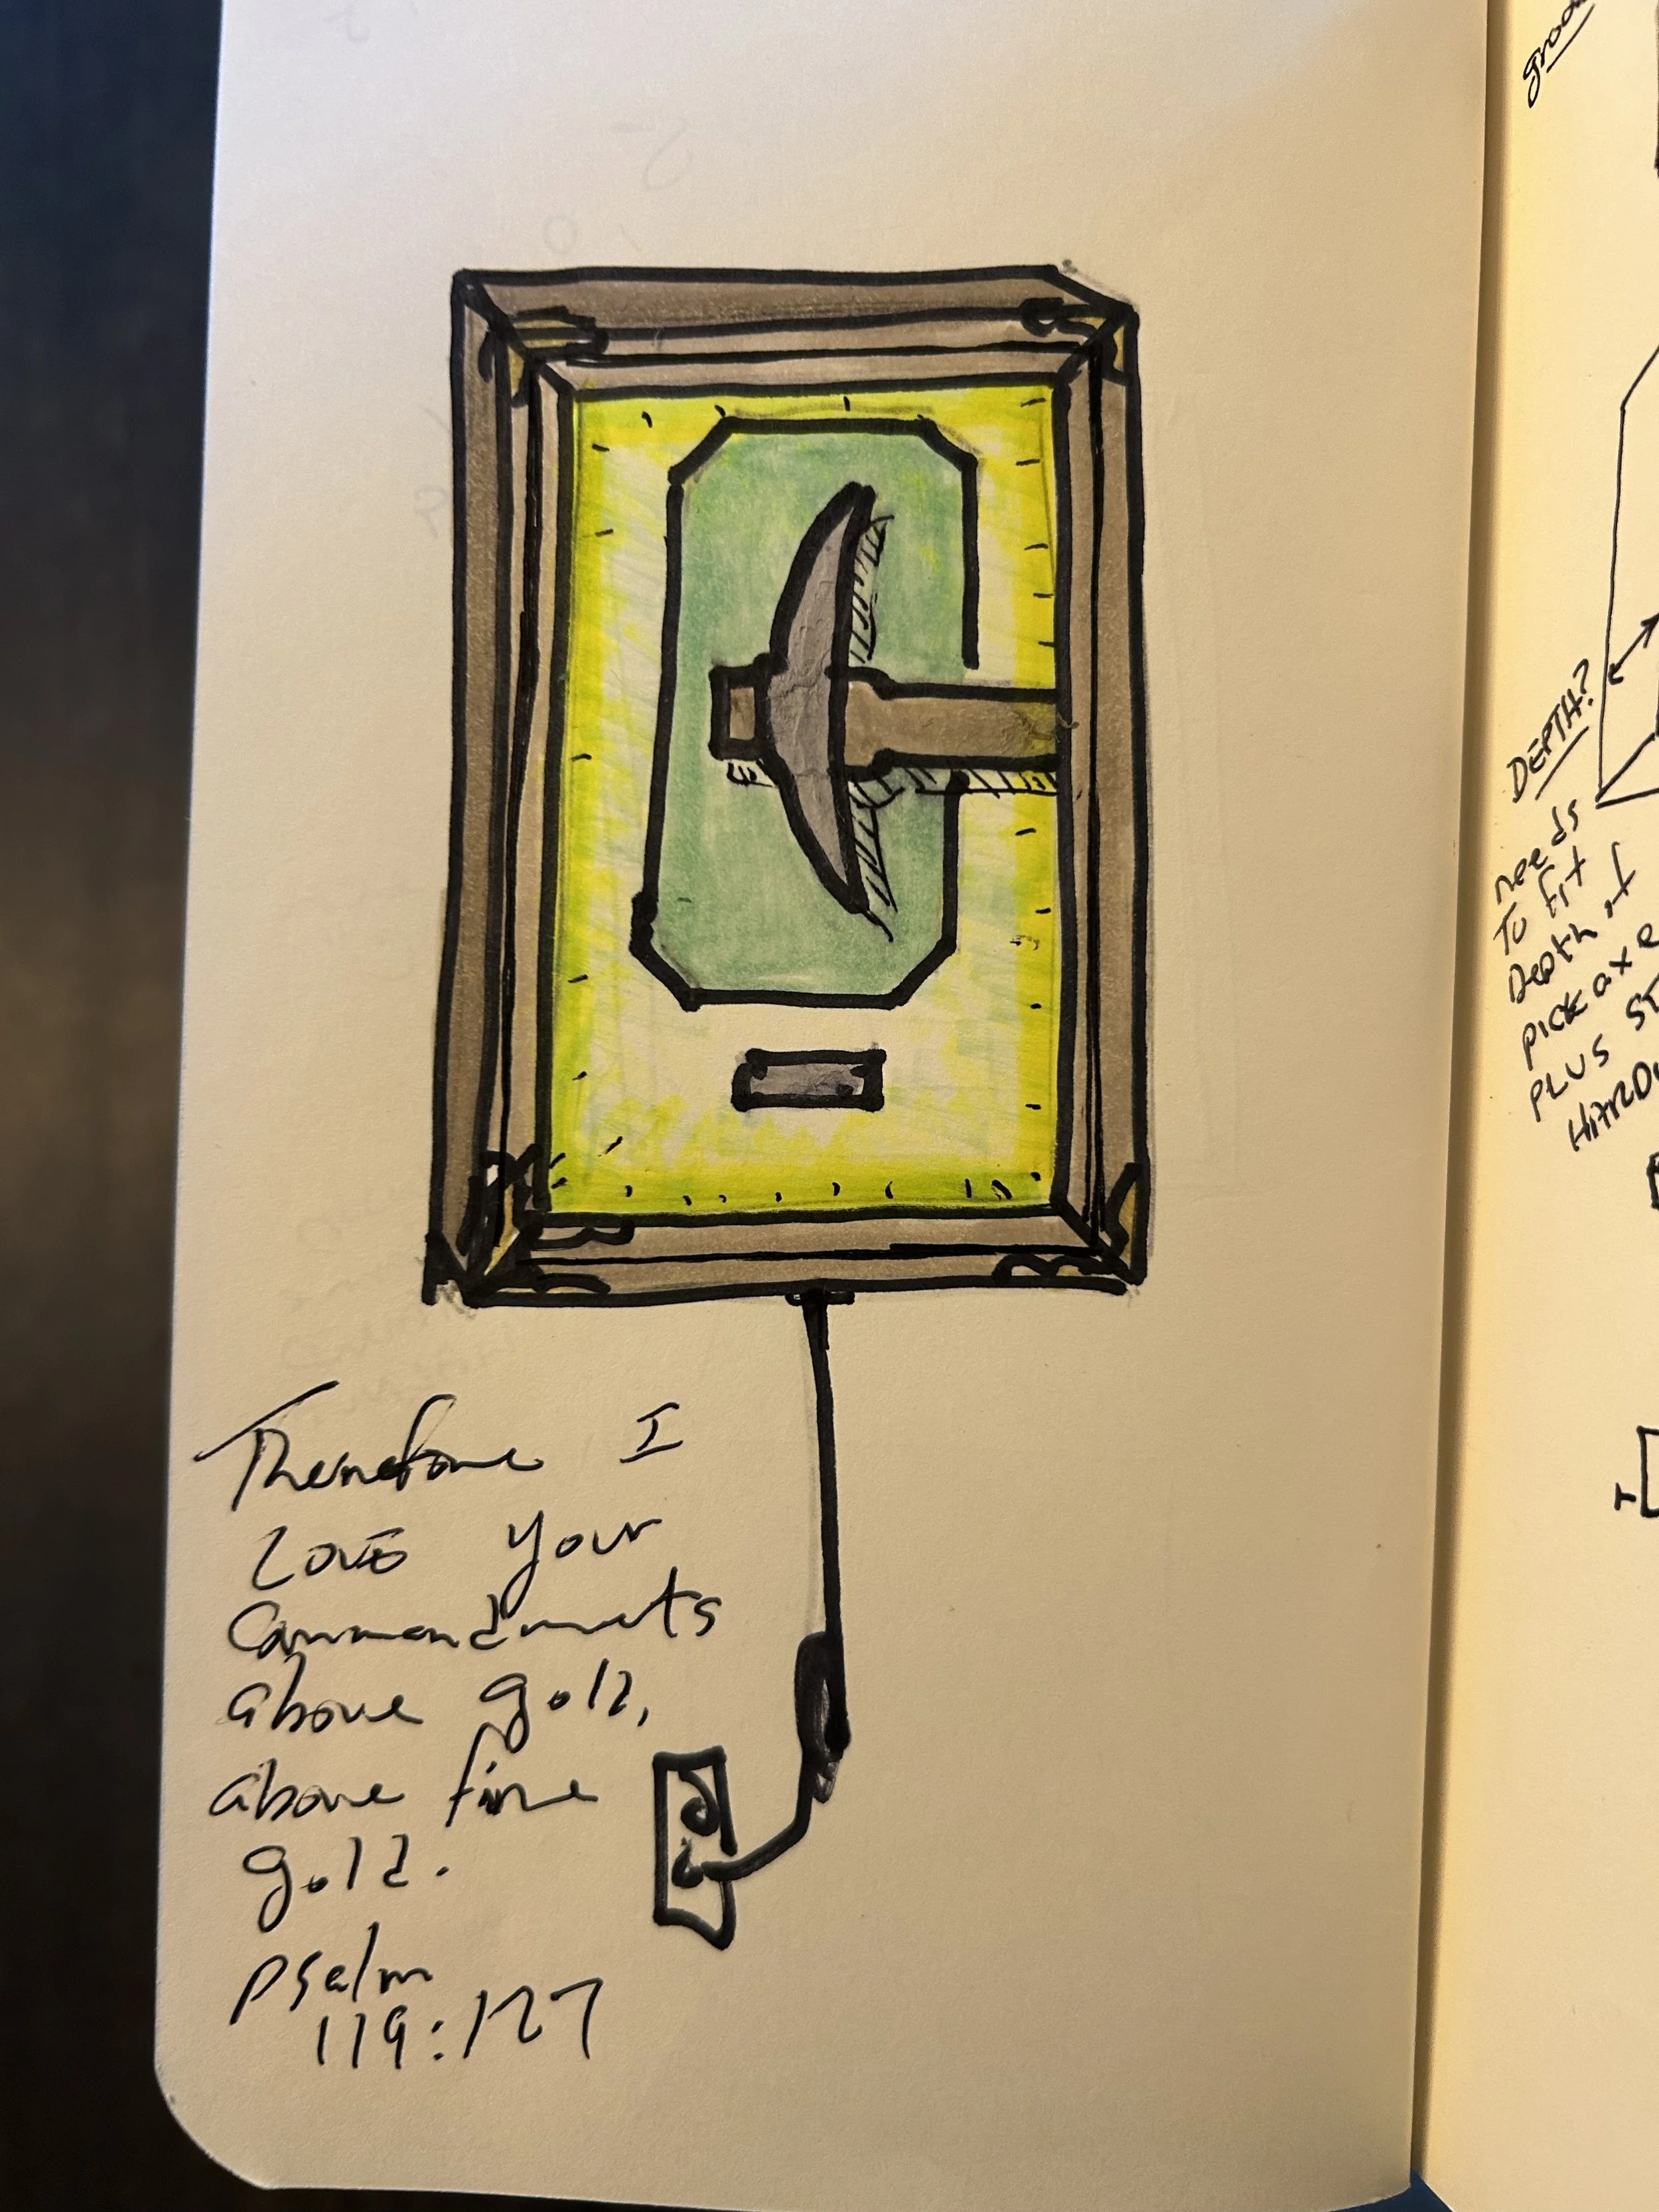 Therefore I
Love your
Commandments
above gold,
above fine
gold.
psalm
119:127
DEPTH?
needs
To fit
Depth of
pick axe
PLUS